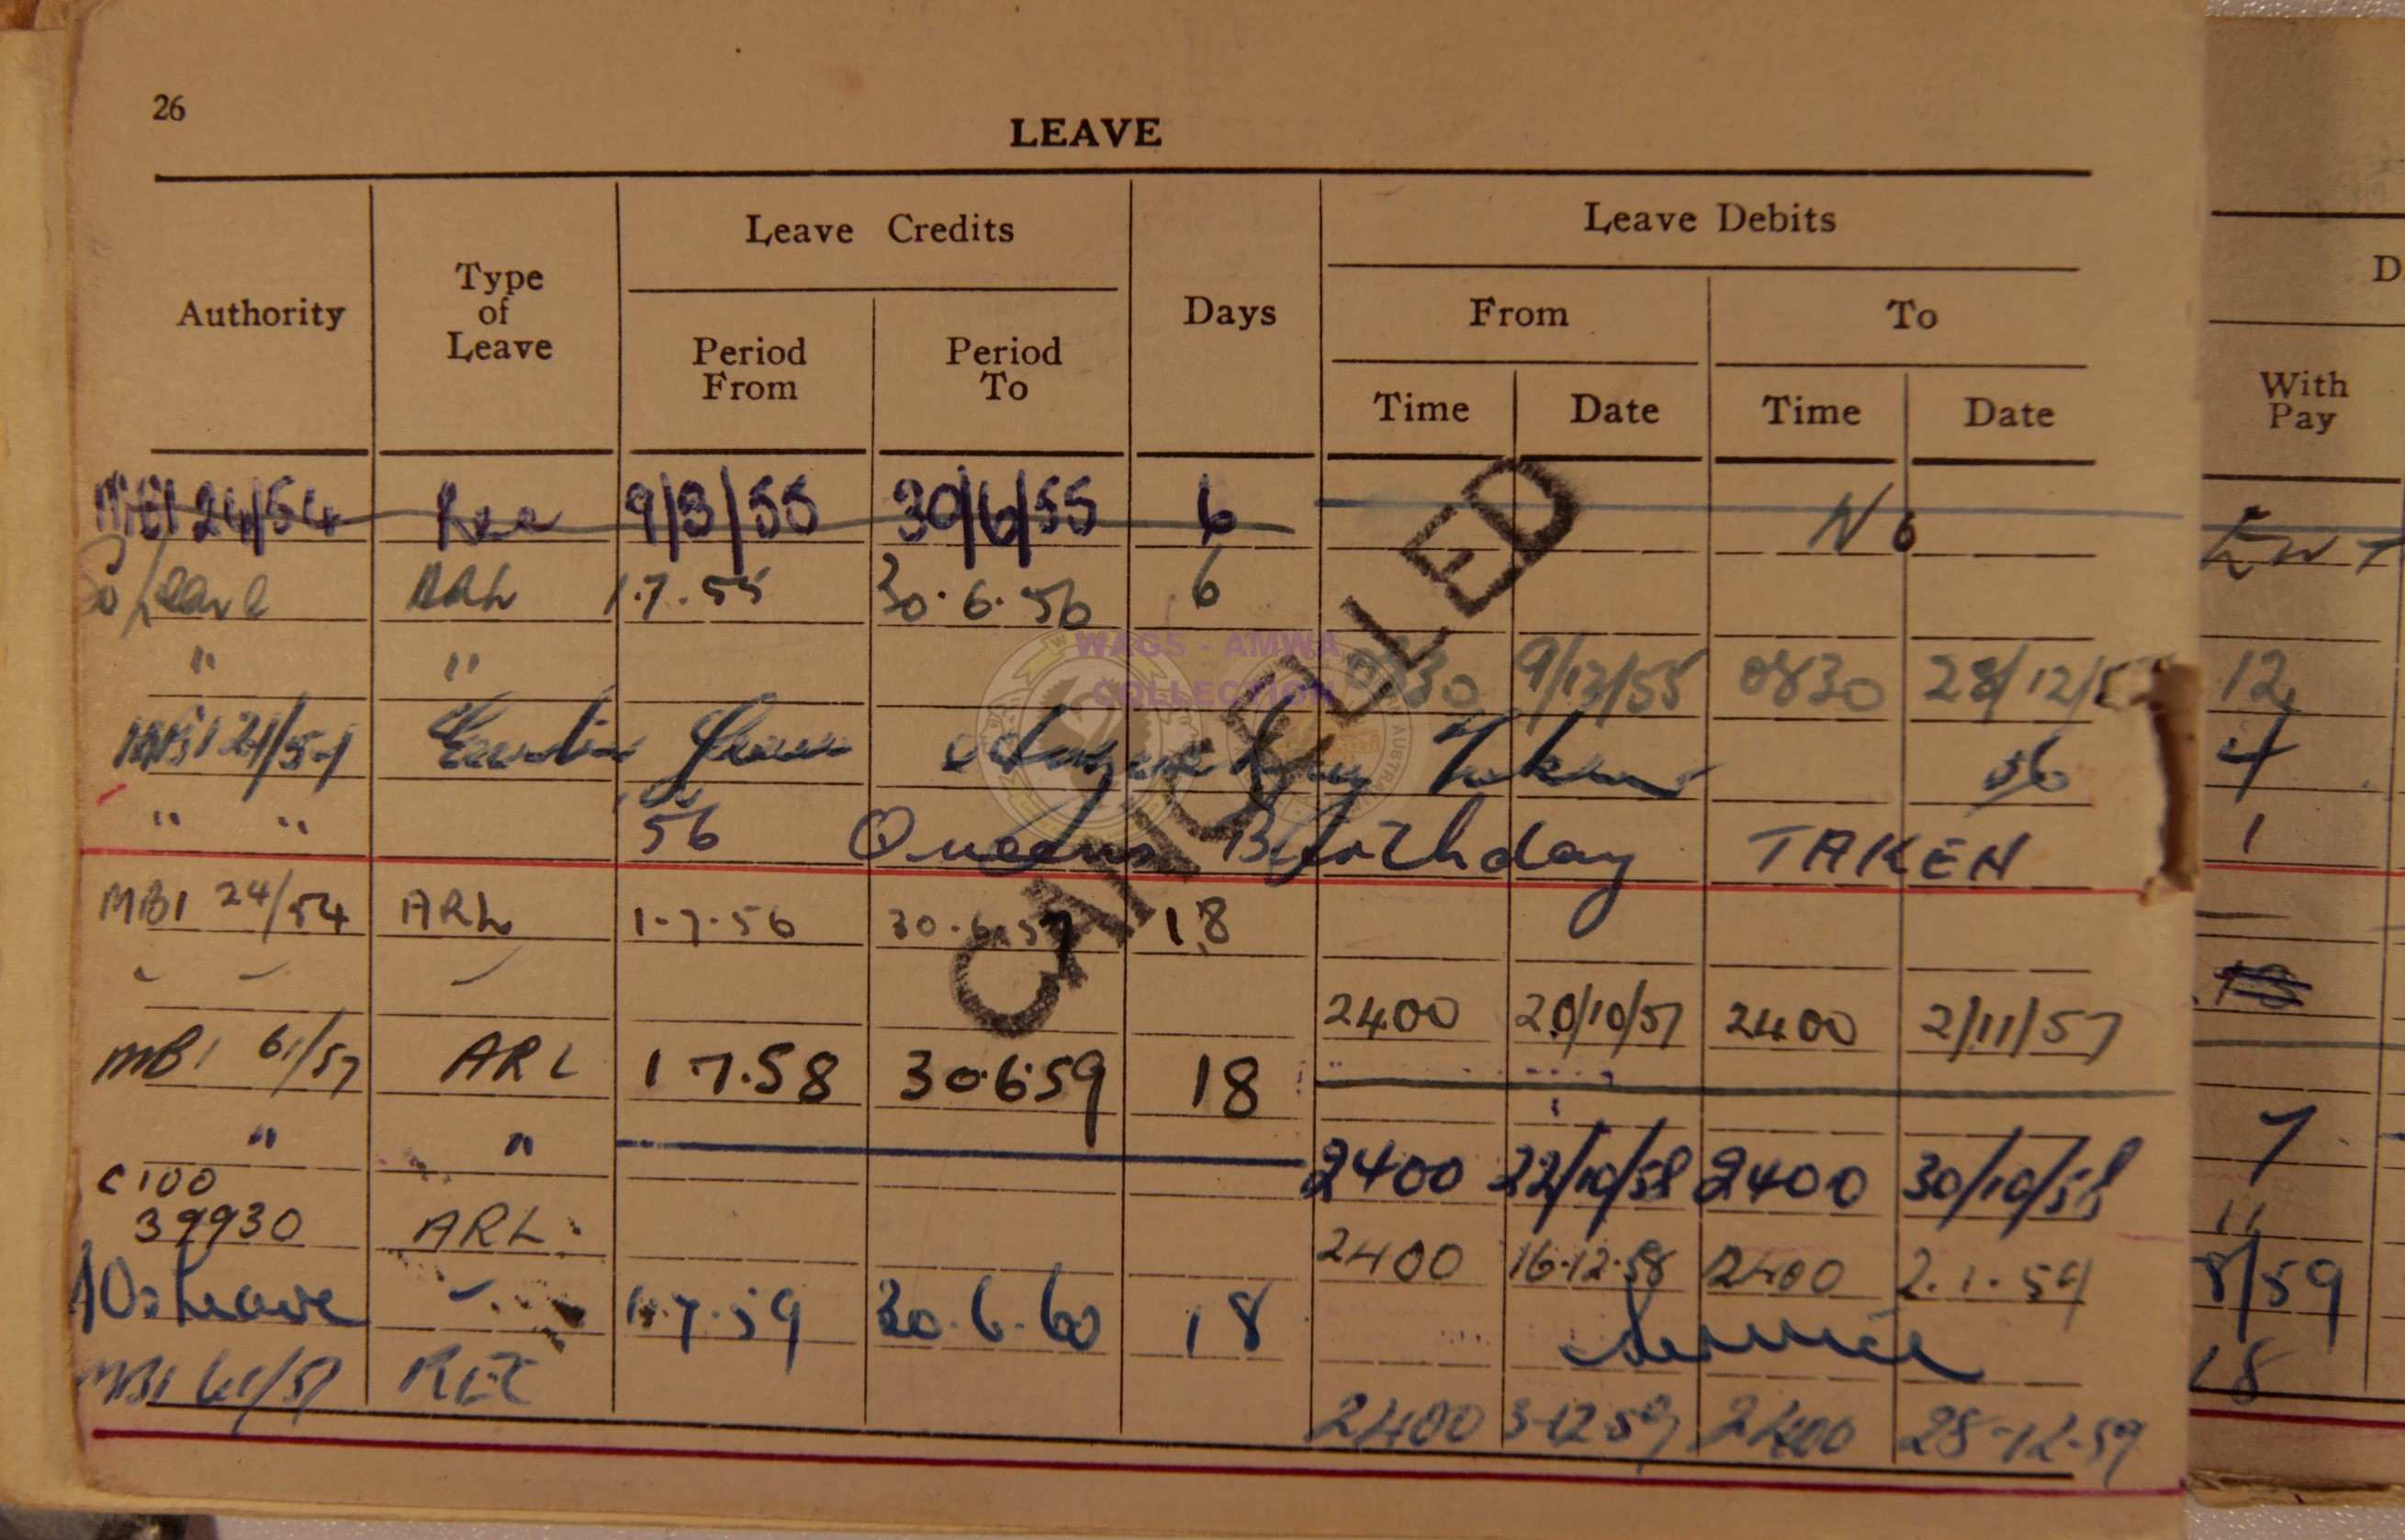 26
LEAVE
Authority
Type of Leave
Leave Credits
Days
Leave Debits
D
Period From
Period To
From
To
With Pay
Time Date Time Date
MBI 24/54 Rec 9/3/55 30/6/55 6 N 6
Leave ARL 1.7.55 30.6.56 6
" " 0830 9/12/55 0830 28/12/5 12
MBI 24/54 Taken 56 4
" " 56 Queens Birthday TAKEN 1
MBI 24/54 ARL 1.7.56 30.6.57 18
2400 20/10/57 2400 2/11/57
MBI 61/57 ARL 1 7.58 30.6.59 18
" " 2400 22/10/58 2400 30/10/58 7
C100
39930 ARL. 2400 16.12.58 2400 2.1.59 11
Leave 1.7.59 30.6.60 18 8/59
MBI 61/57 REC 2400 3-12-59 2400 28-12-59 18
CANCELLED
WAGS - AMWA
COLLECTION